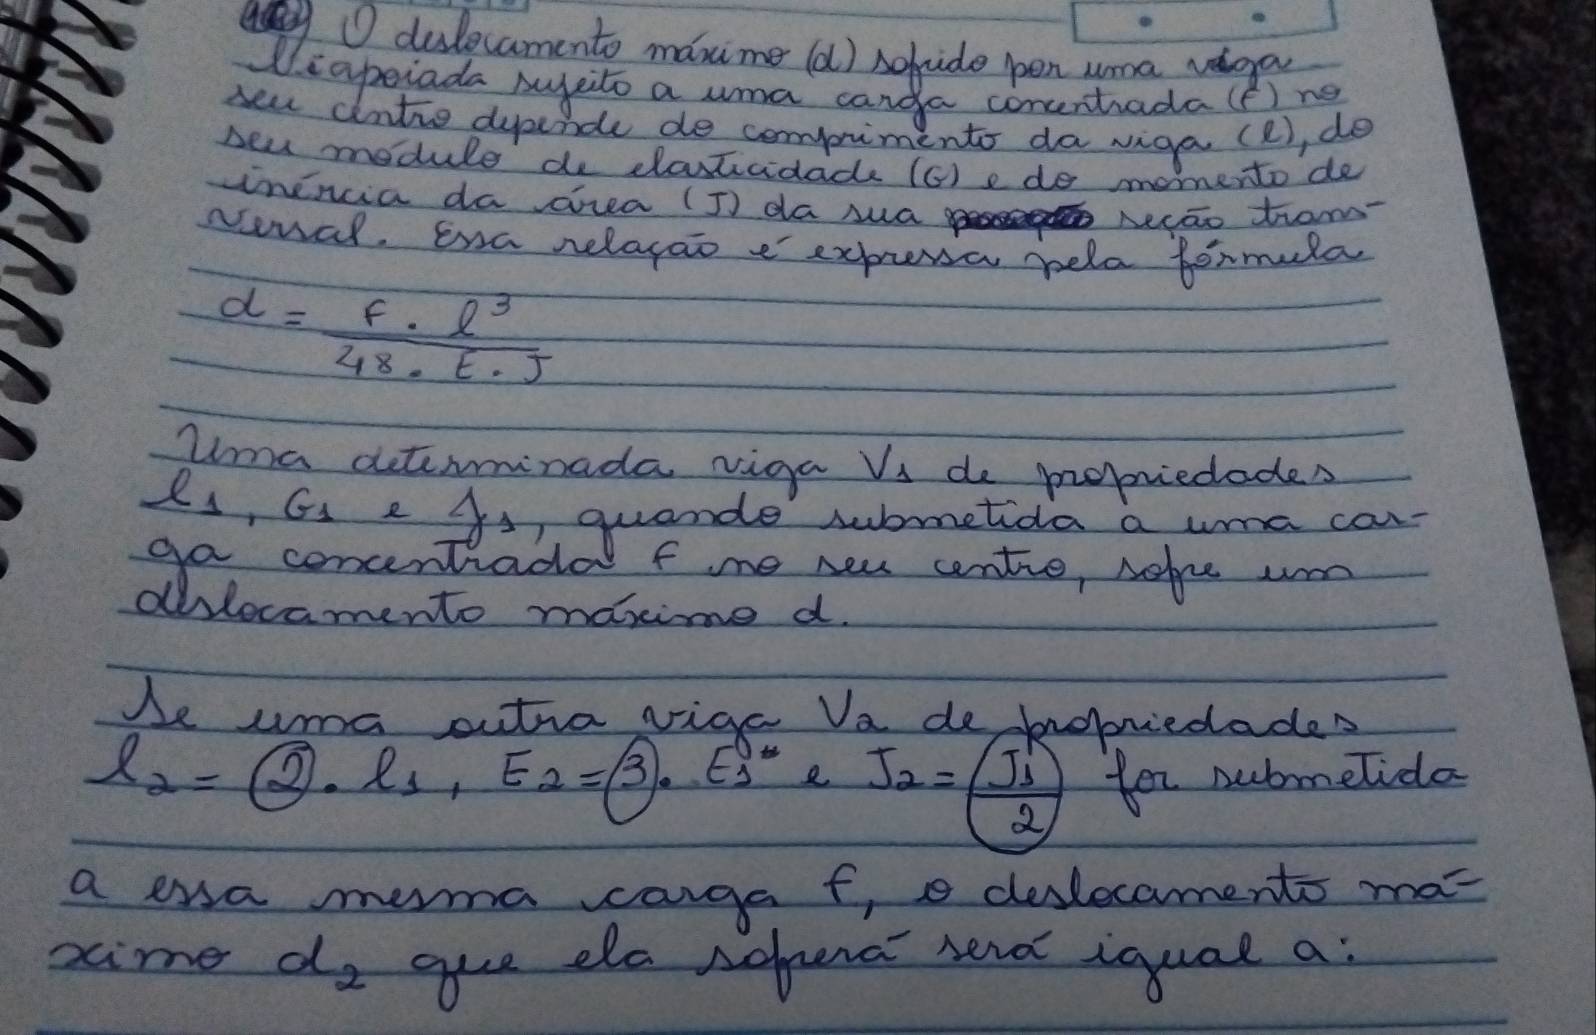 O deslocamento máximo (d) sofrido por uma viga
biapoiada sujeito a uma carga concentrada (F) no
seu centro depende do comprimento da viga (l), do
seu módulo de elasticidade (G) e do momento de
inércia da área (J) da sua seção trans-
versal. Essa relação é expressa pela fórmula
d = F . l³
48 . E . J
Uma determinada viga V1 de propriedades
l1, G1 e J1, quando submetida a uma car-
ga concentrada F no seu centro, sofre um
deslocamento máximo d.
Se uma outra viga V2 de propriedades
l2 = 2 . l1, E2 = 3 . E1 e J2 = J1 for submetida
2
a essa mesma carga F, o deslocamento má-
ximo d2 que ela sofrerá será igual a: